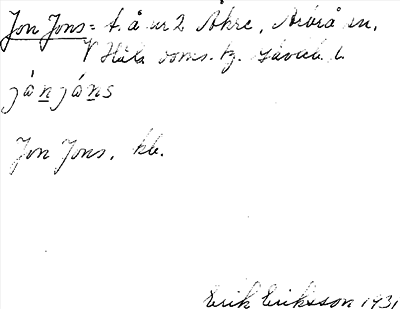 Jon Jons = t. å nr 2 Åkre, Arbrå sn,
V Häls. doms. tg. Gävleb. l.
jánjáns
Jon Jons, kb.
Erik Eriksson 1931